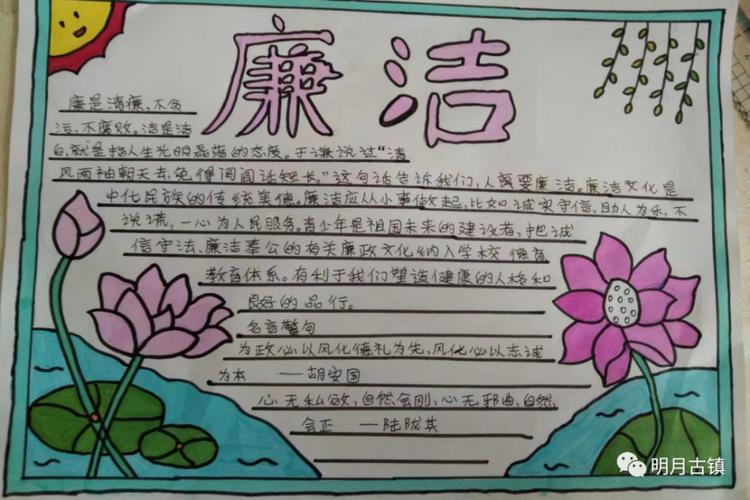 廉洁
廉是清廉,不贪
污,不腐败。洁是洁
白,就是指人生光明磊落的态度。于谦说过"清
风两袖朝天去,免得闾阎话短长。"这句话告诉我们,人需要廉洁。廉洁文化是
中化民族的传统美德。廉洁应从小事做起,比如诚实守信,助人为乐,不
说谎,一心为人民服务。青少年是祖国未来的建设者,把诚
信守法、廉洁奉公的有关廉政文化纳入学校德育
教育体系。有利于我们塑造健康的人格和
良好的品行。
名言警句
为政必以风化德礼为先,风化必以志诚
为本 ——胡安国
心无私欲,自然会刚,心无邪曲,自然
会正 ——陆陇其
明月古镇